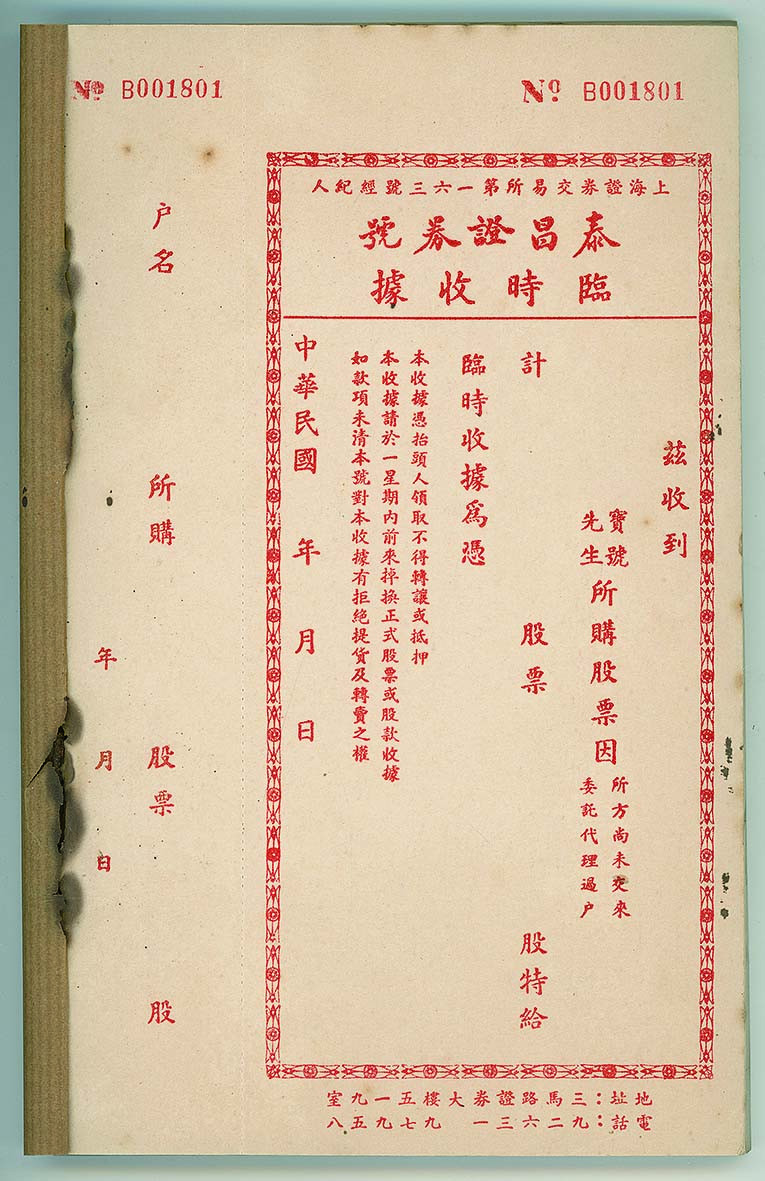 Nº B001801
上海證券交易所第一六三號經紀人
泰昌證券號
臨時收據
茲收到
寶號
先生
所購股票因
所方尚未交來
委託代理過户
計 股票 股特給
臨時收據爲憑
本收據憑抬頭人領取不得轉讓或抵押
本收據請於一星期内前來掉換正式股票或股款收據
如款項未清本號對本收據有拒絶提貨及轉賣之權
中華民國 年 月 日
地址:三馬路證券大樓五一九室
電話:九二六三一 九七九五八
Nº B001801
户名 所購 股票 股
年 月 日